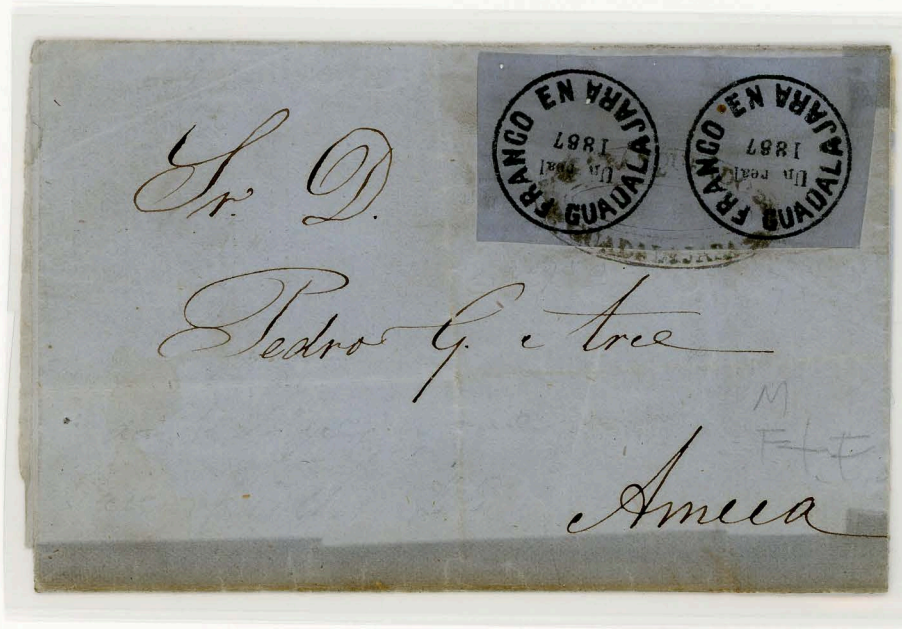 FRANCO EN GUADALAJARA
Un real
1867
FRANCO EN GUADALAJARA
Un real
1867
GUADALAJARA
Sr. D.
Pedro G. Arce
Ameca
M